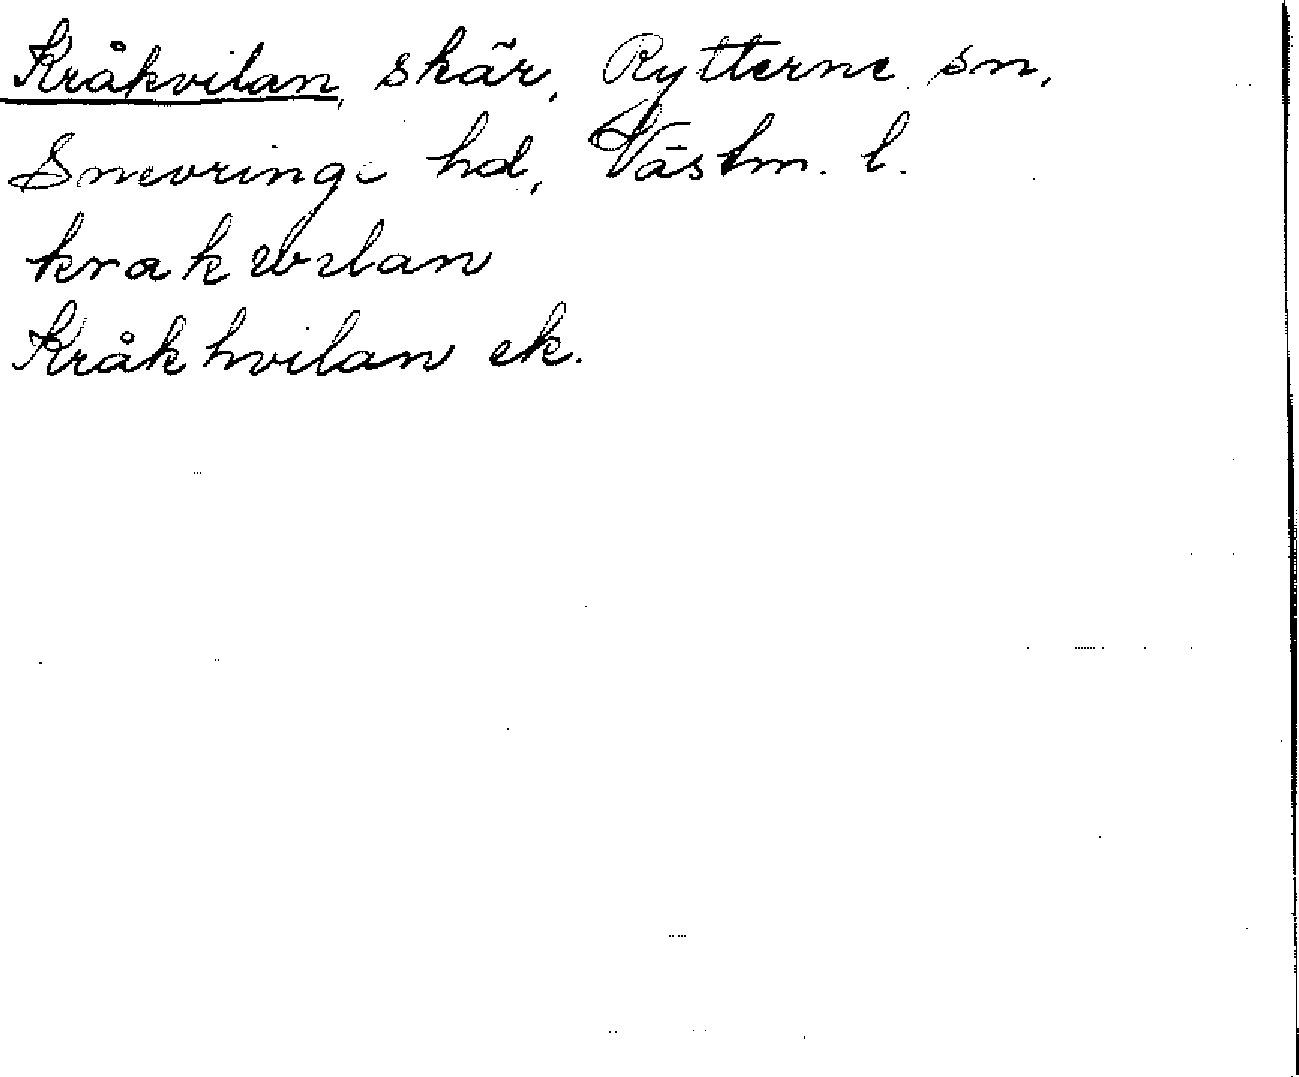 Kråkvilan, skär, Rytterne sn,
Snevringe hd, Västm. l.
krakwilan
Kråkhvilan ek.